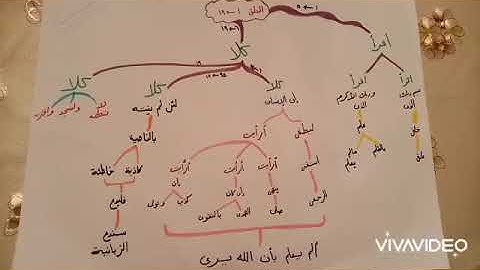 العلق ١-١٩
١-٥
٦-١٩
اقرأ
كلا
اقرأ
اقرأ
كلا
كلا
كلا
باسم ربك
الذي
خلق
خلق
وربك الأكرم
الذي
علم
بالقلم
مالم
يعلم
إن الإنسان
ليطغى
استغنى
الرجعى
أرأيت
أرأيت
أرأيت
أرأيت
ينهى
صلى
إن كان
الهدى
بالتقوى
إن
كذب
وتولى
ألم يعلم بأن الله يرى
لئن لم ينته
بالناصية
كاذبة
خاطئة
فليدع
سندع
الزبانية
لا تطعه
واسجد
واقترب
VIVAVIDEO